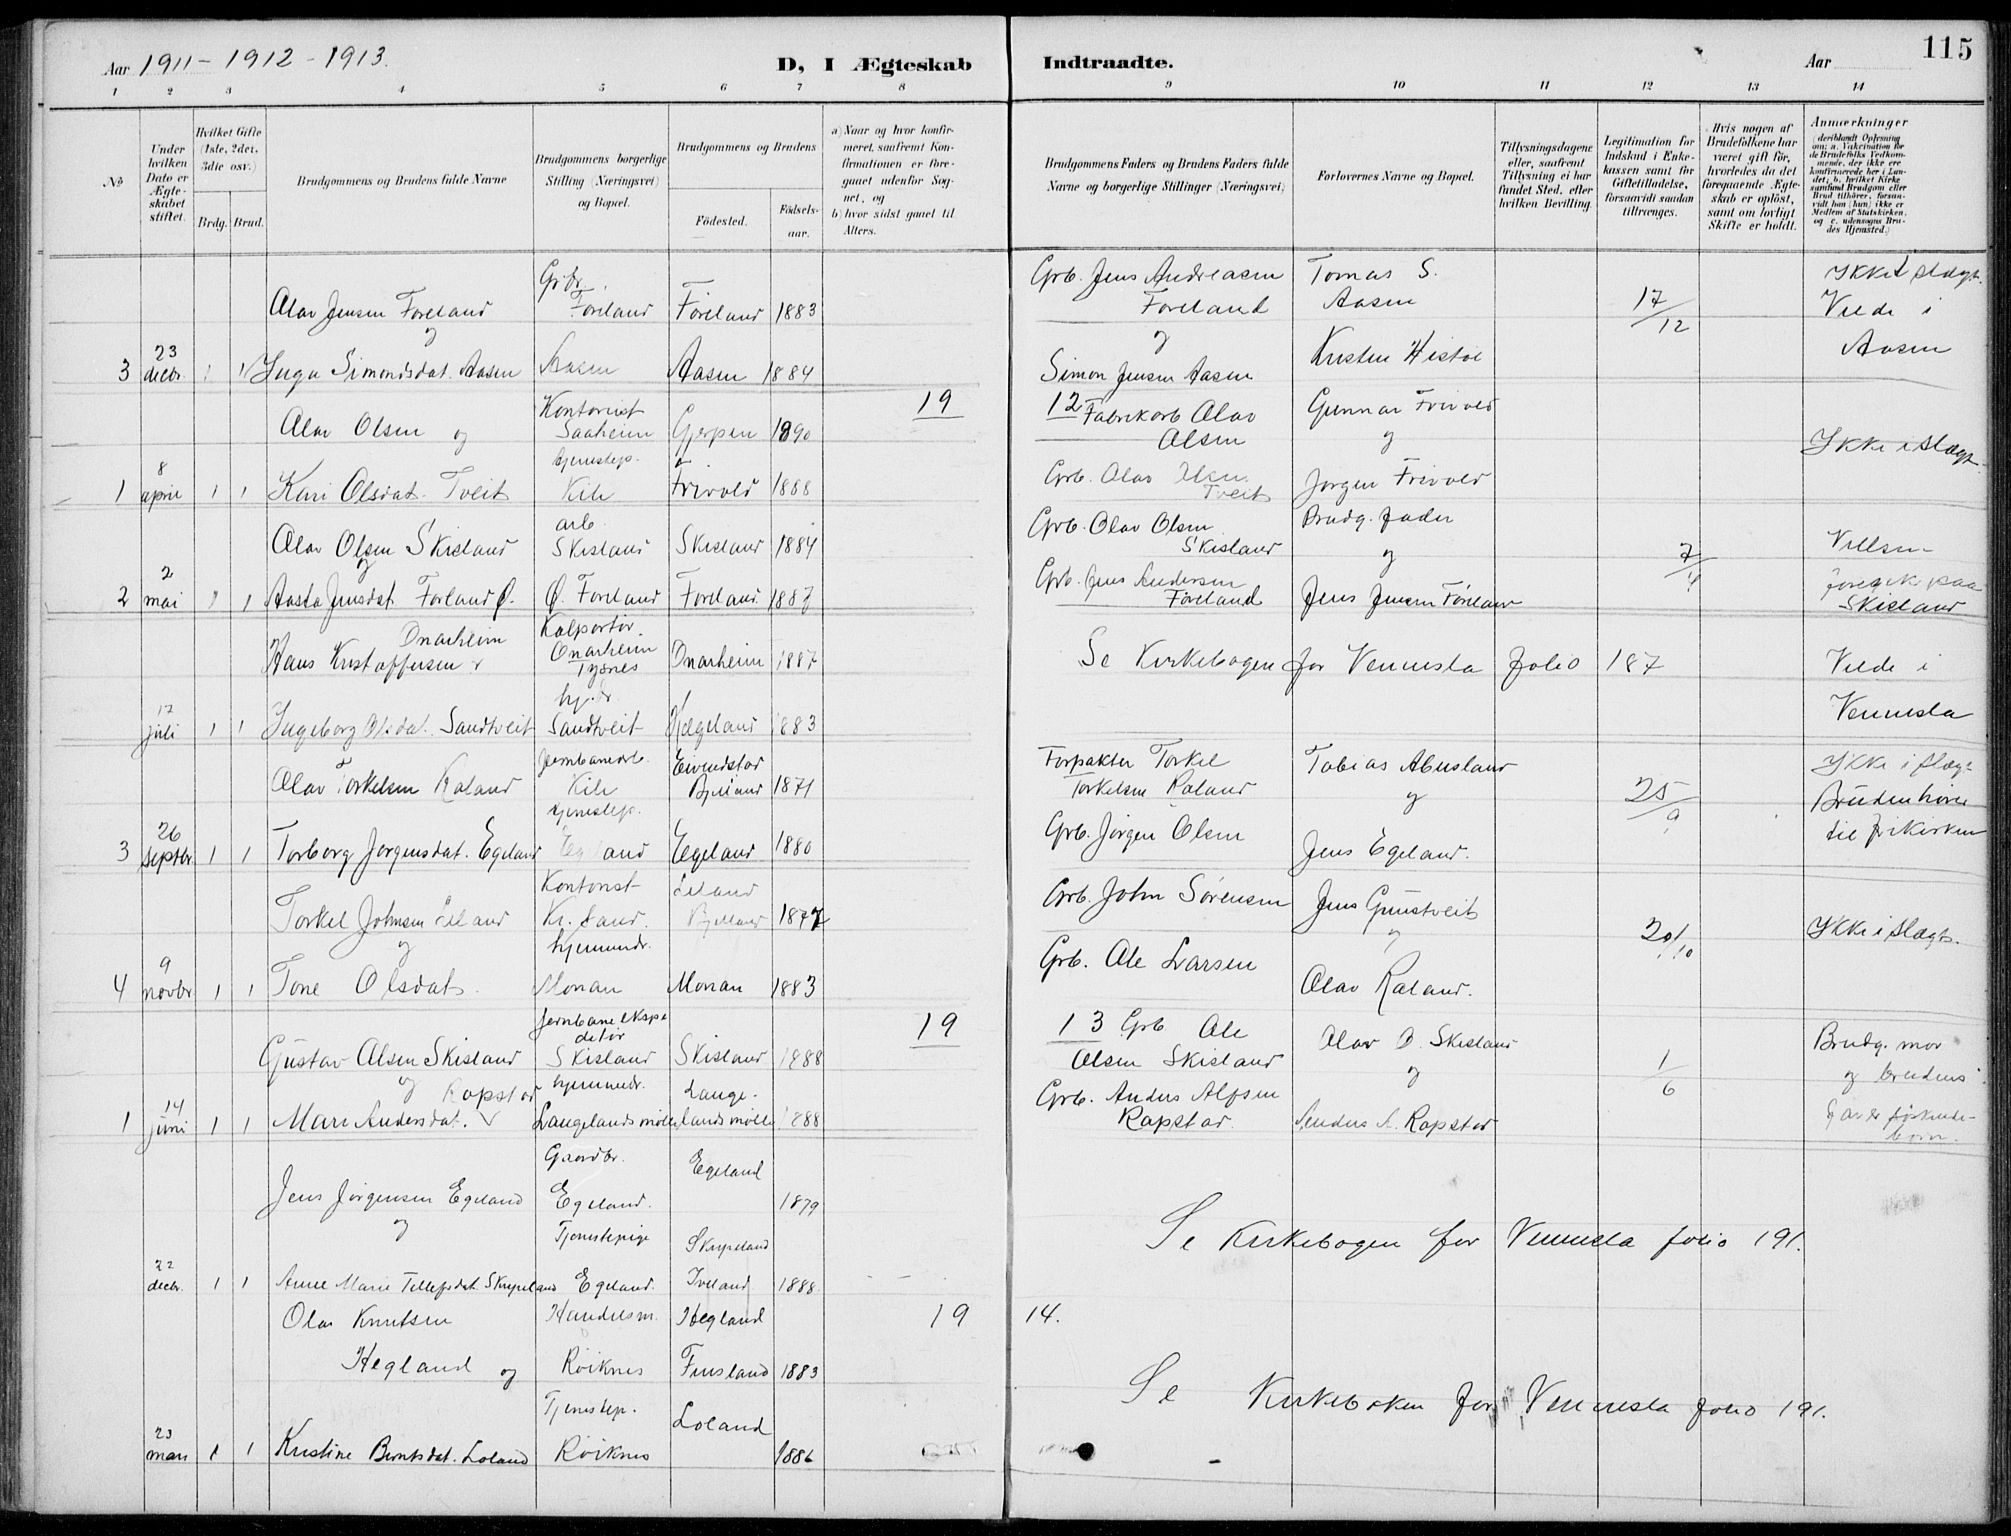 Aar 1911 - 1912 - 1913.
D, I Ægteskab
Indtraadte.
Aar
115
1 2 3 4 5 6 7 8 9 10 11 12 13 14
No
Under hvilken Dato er Ægteskabet stiftet.
Hvilket Gifte (1ste, 2det, 3die osv.)
Brdg. Brud.
Brudgommens og Brudens fulde Navne
Brudgommens borgerlige Stilling (Næringsvei) og Bopæl.
Brudgommens og Brudens
Fødested.
Fødselsaar.
a) Naar og hvor konfirmeret, saafremt Konfirmationen er foregaaet udenfor Sognet, og
b) hvor sidst gaaet til Alters.
Brudgommens Faders og Brudens Faders fulde Navne og borgerlige Stillinger (Næringsvei)
Forlovernes Navne og Bopæl.
Tillysningsdagene eller, saafremt Tillysning ei har fundet Sted, efter hvilken Bevilling.
Legitimation for Indskud i Enkekassen samt for Giftetilladelse, forsaavidt saadan tiltrænges.
Hvis nogen af Brudefolkene har været gift før, hvorledes da det foregaaende Ægteskab er opløst, samt om lovligt Skifte er holdt.
Anmærkninger (deriblandt Oplysning om: a. Vakcination for de Brudefolks Vedkommende, der ikke ere konfirmerede her i Landet; b. hvilket Kirkesamfund Brudgom eller Brud tilhører, forsaavidt han (hun) ikke er Medlem af Statskirken, og c. udensogns Brudes Hjemsted.)
Grbr. Grb. Jens Andreasen Tomas S. Ikke i slægt.
Olav Jensen Foreland Foreland Føreland 1883 Foreland Aasen 17/12 Viede i
og og Aasen
3 23 decbr. 1 1 Inga Simonsdat. Aasen Aasen Aasen 1884 Simon Jensen Aasen Kristen Histøl
19 12
Olav Olsen og Kontorist Saaheim Gjerpen 1890 Fabrikarb Olav Olsen Gunnar Frivold og Ikke i slægt
1 8 april 1 1 Kari Olsdat. Tveit tjenestep. Kile Frivold 1888 Grb. Olav Olsen Tveit Jørgen Frivold
Olav Olsen Skisland arb Skisland Skisland 1884 Grb. Olav Olsen Skisland Brudg. fader og 7/4 Vielsen
og
2 2 mai 1 1 Aasta Jensdat. Forland Ø. Ø. Foreland Foreland 1887 Grb. Jens Andersen Føreland Jens Jensen Föreland foregik paa Skisland
Hans Kristoffersen Onarheim Kolportør. Onarheim Tysnes Onarheim 1887 Se Kirkebogen for Vennesla folio 187 Viede i
17 juli 1 1 Ingeborg Olsdat. Sandtveit Sandtveit Hægeland 1883 Vennesla
Olav Torkelsen Raland Jernbanearb. Kile Eivindstad Bjelland 1871 Forpakter Torkel Torkelsen Raland Tobias Abusland og 25/9 Ikke i slægt
Bruden hører til frikirken
3 26 septbr. 1 1 Torborg Jørgensdat. Egeland tjenestep. Egeland Egeland 1880 Grb. Jörgen Olsen Jens Egeland.
Torkel Johnsen Eiland Kontorist Kr. sand. Eiland Bjelland 1877 Grb. John Sörensen Jens Gunstveit og 20/10 Ikke i slægt.
og
4 9 novbr. 1 1 Tone Olsdat. hjemmedr. Monan Monan 1883 Grb. Ole Larsen Olav Raland.
19 13
Gustav Olsen Skisland Jernbaneekspeditør Skisland Skisland 1888 Grb Ole Olsen Skisland Olav O. Skisland og 1/6 Brudg. mor og brudens
og Rapstad
1 14 juni 1 1 Mari Andersdat. hjemmedr. Langelandsmölle Langelandsmölle 1888 Grb. Anders Alfsen Rapstad. Anders A. Rapstad far er söskendebörn.
Jens Jørgensen Egeland Gaardbr. Egeland. Egeland 1879
og
22 decbr. 1 1 Anne Marie Tellefsdat. Skripeland Tjenestepige Egeland. Skripeland Iveland 1888 Se Kirkebogen for Vennesla folio 191.
19 14.
Olav Knutsen Hegland og Handelsm. Röiknes Hegland Finsland 1883
23 mars 1 1 Kristine Berntsdat. Loland Tjenestep. Röiknes Loland 1886 Se Kirkeboken for Vennesla folio 191.